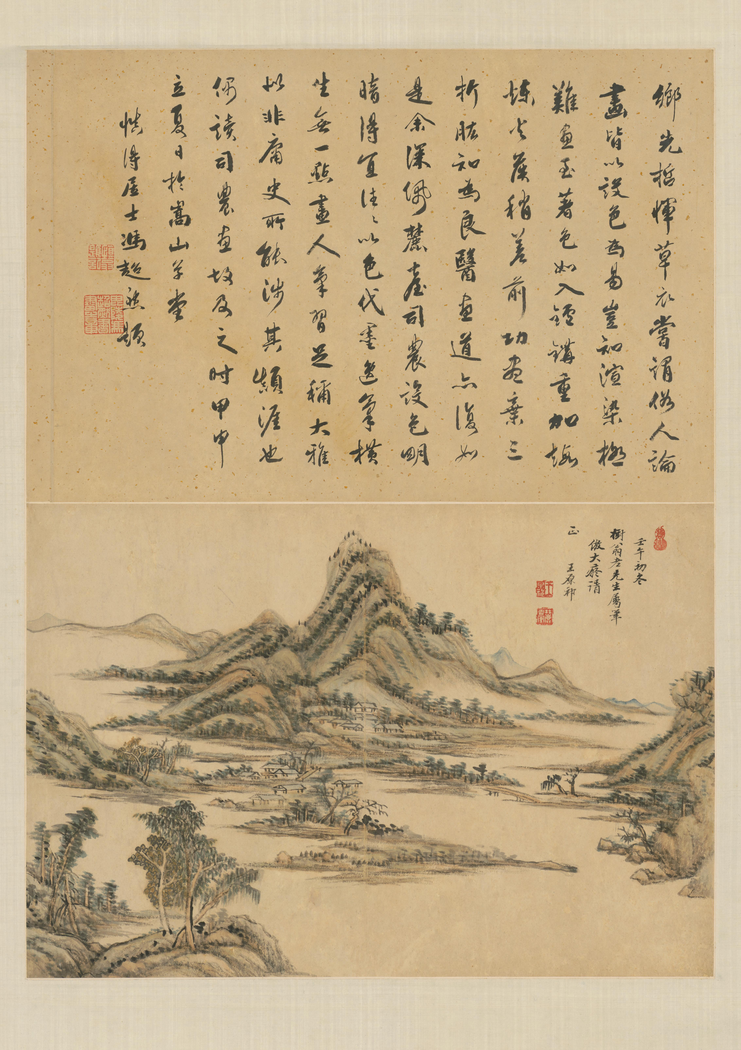 鄉先哲惲草衣嘗謂俗人論
畫皆以設色為易豈知渲染極
難畫至著色如入鑪鏄重加煅
煉火候稍差前功盡棄三
折肱知為良醫畫道亦復如
是余深佩麓臺司農設色明
暗得宜往往以色代墨逸筆橫
生無一點畫人筆習足稱大雅
以非庸史所能涉其頻涯也
偶讀司農畫故及之時甲申
立夏日於嵩山草堂
惕得居士馮超然題
壬午初冬
樹翁老先生屬筆
倣大癡請
正 王原祁